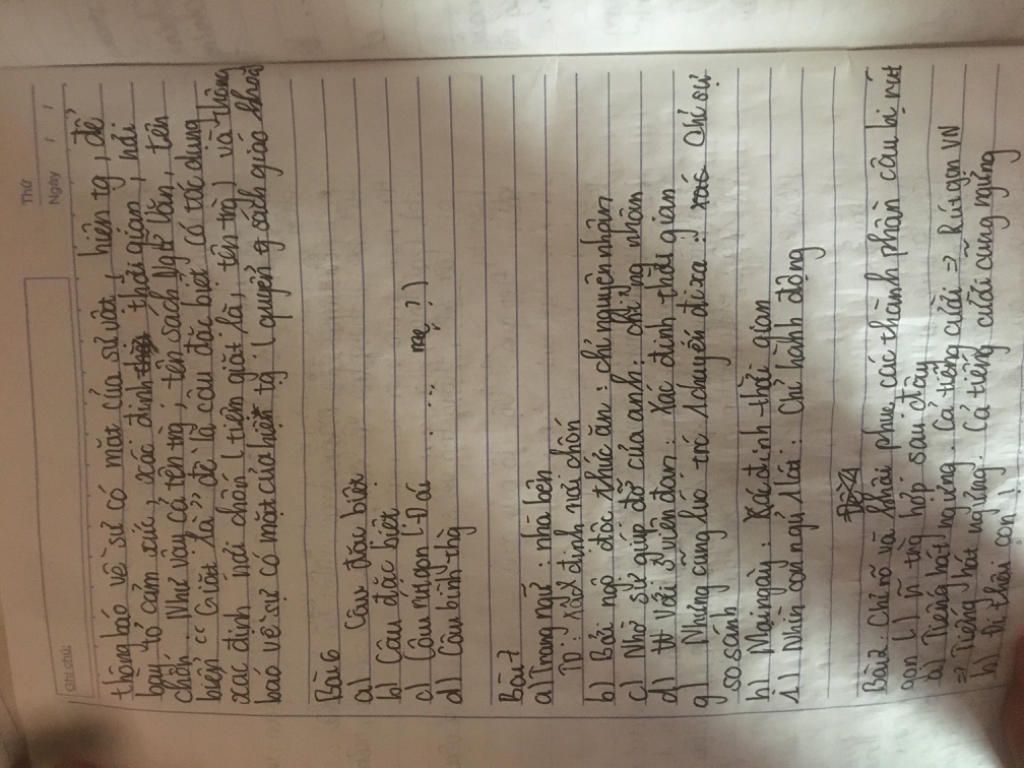 Thứ
Ngày / /
Ghi chú:
thông báo về sự có mặt của sự vật, hiện tg, để
bày tỏ cảm xúc, xác định thời gian, nơi
chốn. Như vậy cả tên trg, tên sách Ngữ Văn, tên
biển "Giặt là" đề là câu đặc biệt có tác dụng
xác định nơi chốn (tiệm giặt là, tên trg) và thông
báo về sự có mặt của hiện tg (quyển g sách giáo khoa
Bài 6
a) Câu đặc biệt
b) Câu đặc biệt
c) Câu rút gọn (-Đá ....... mẹ?)
d) Câu bình thg
Bài 7
a) Trạng ngữ: nhà bên
TD: xác định nơi chốn
b) Bởi ngộ độc thức ăn: chỉ nguyên nhân
c) Nhờ sự giúp đỡ của anh: chỉ ng nhân
d) Với viên đạn: Xác định thời gian
g) Nhưng cũng lúc trc 1 chuyến đi xa: Chỉ sự
so sánh
h) Mọi ngày: Xác định thời gian
i) Nhìn con ngủ 1 lát: Chỉ hành động
Bài 2: Chỉ rõ và khôi phục các thành phần câu bị rút
gọn () ở trg hợp sau đây
a) Tiếng hát ngừng. Cả tiếng cười => Rút gọn VN
=> Tiếng hát ngừng. Cả tiếng cười cũng ngừng
b) Đi thôi con!